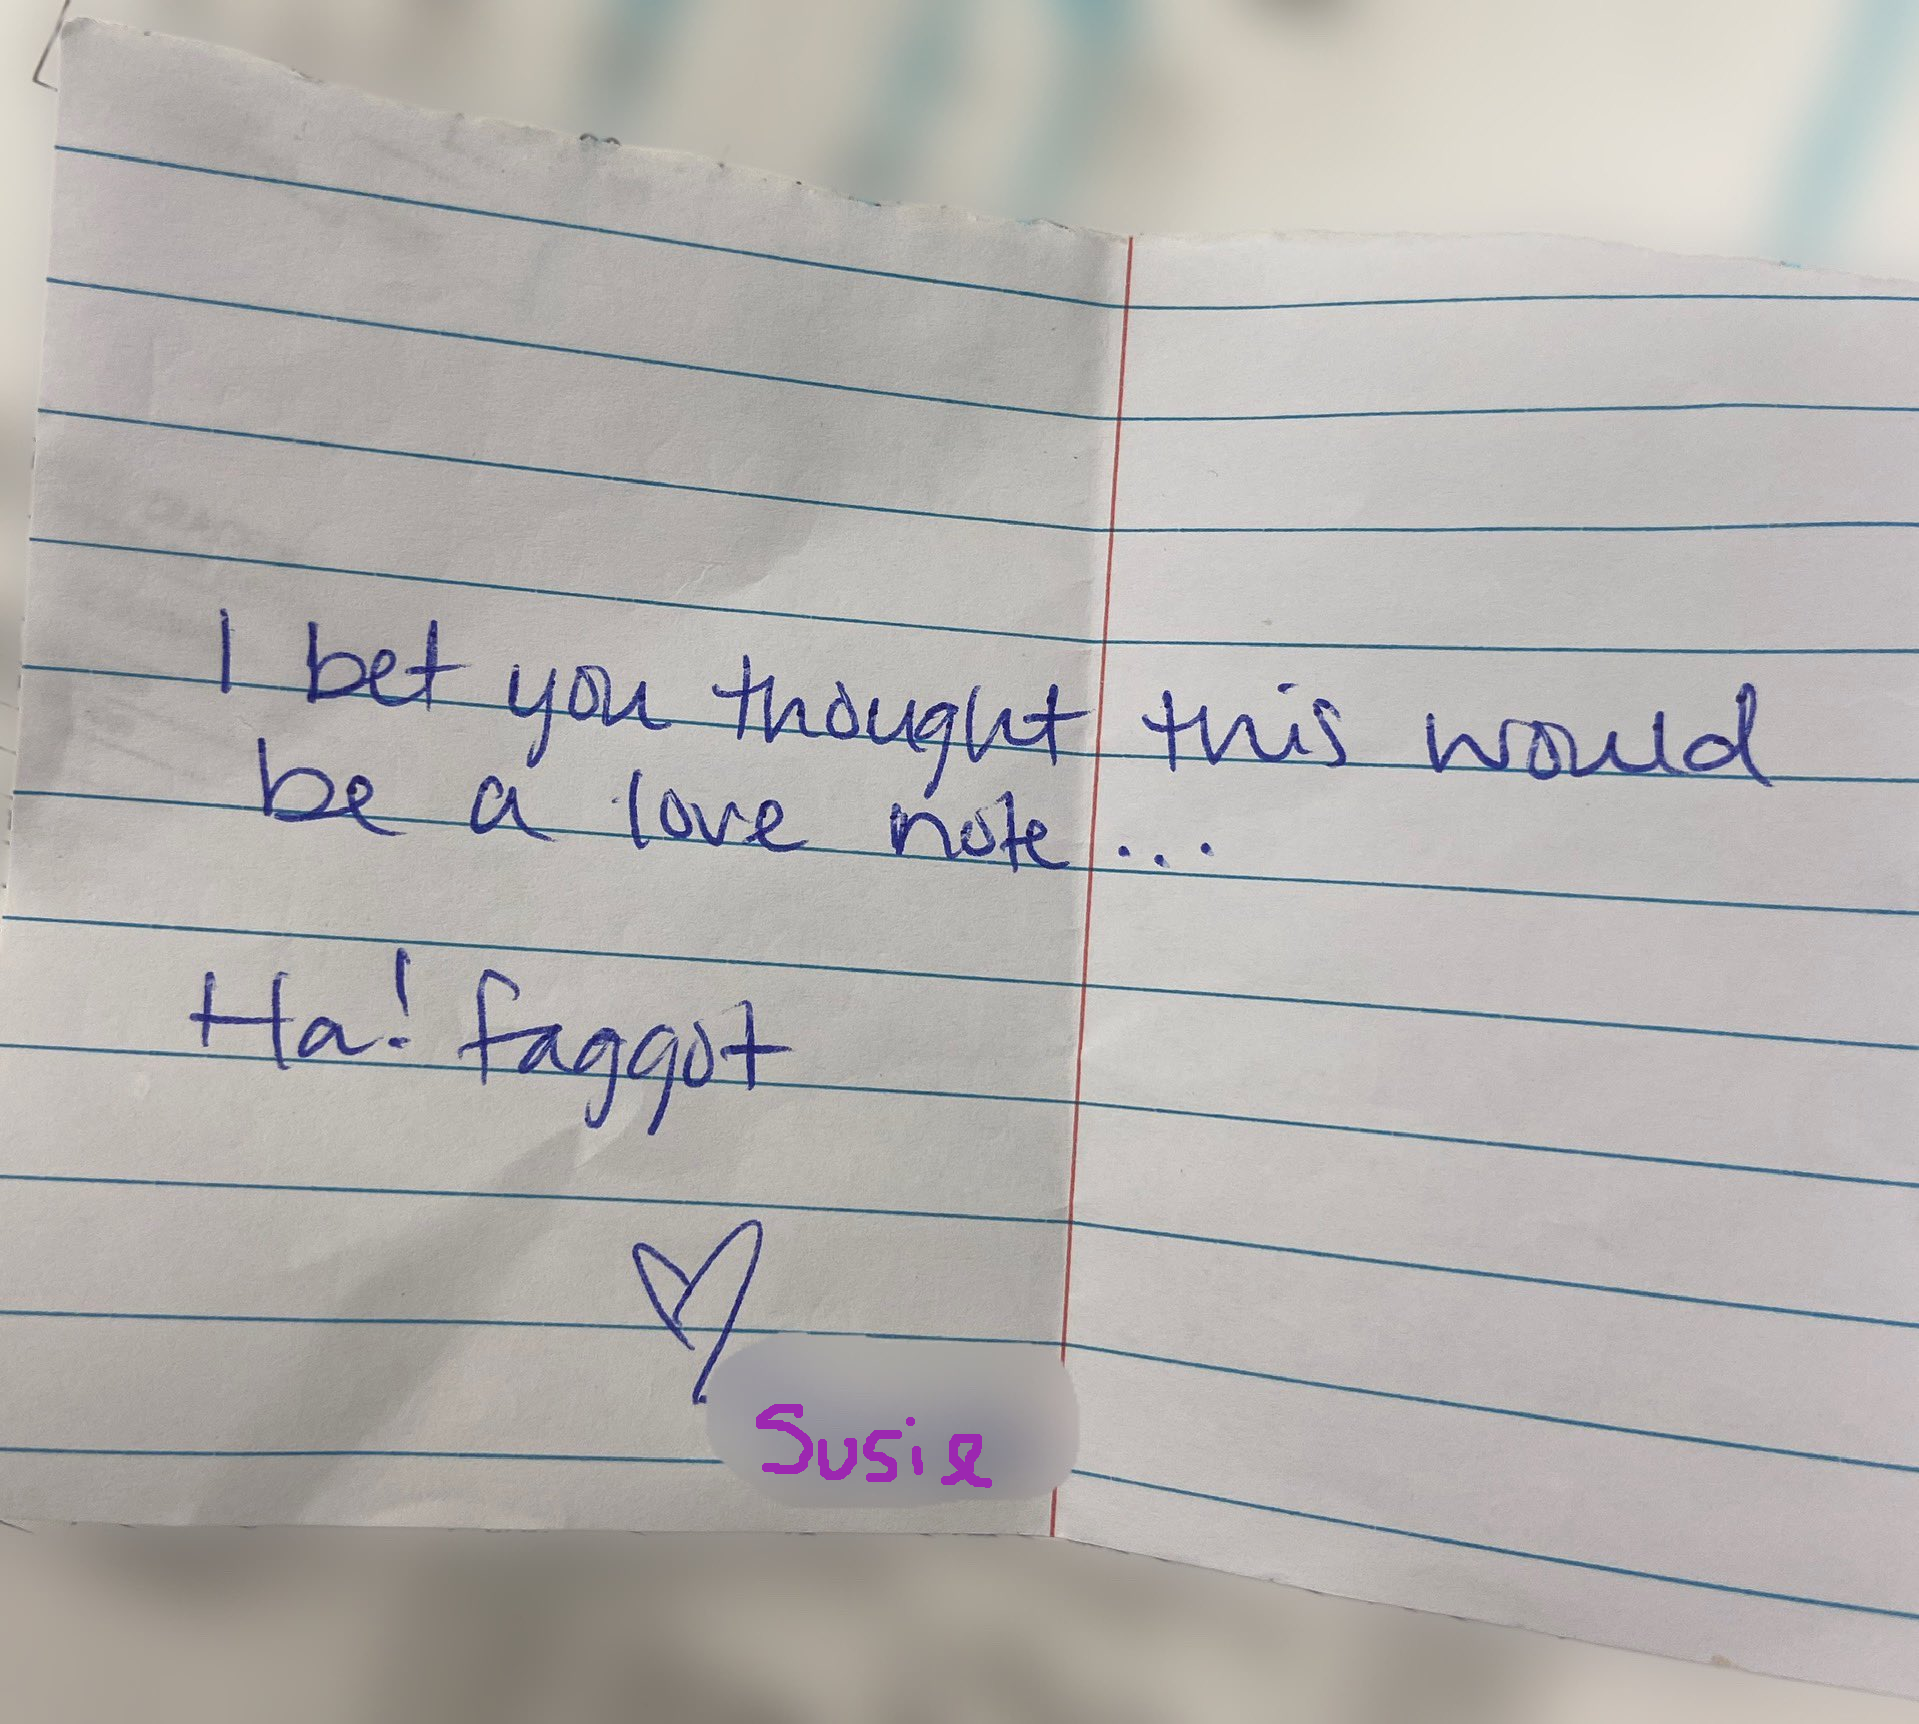 I bet you thought this would
be a love note...
Ha! faggot
Susie